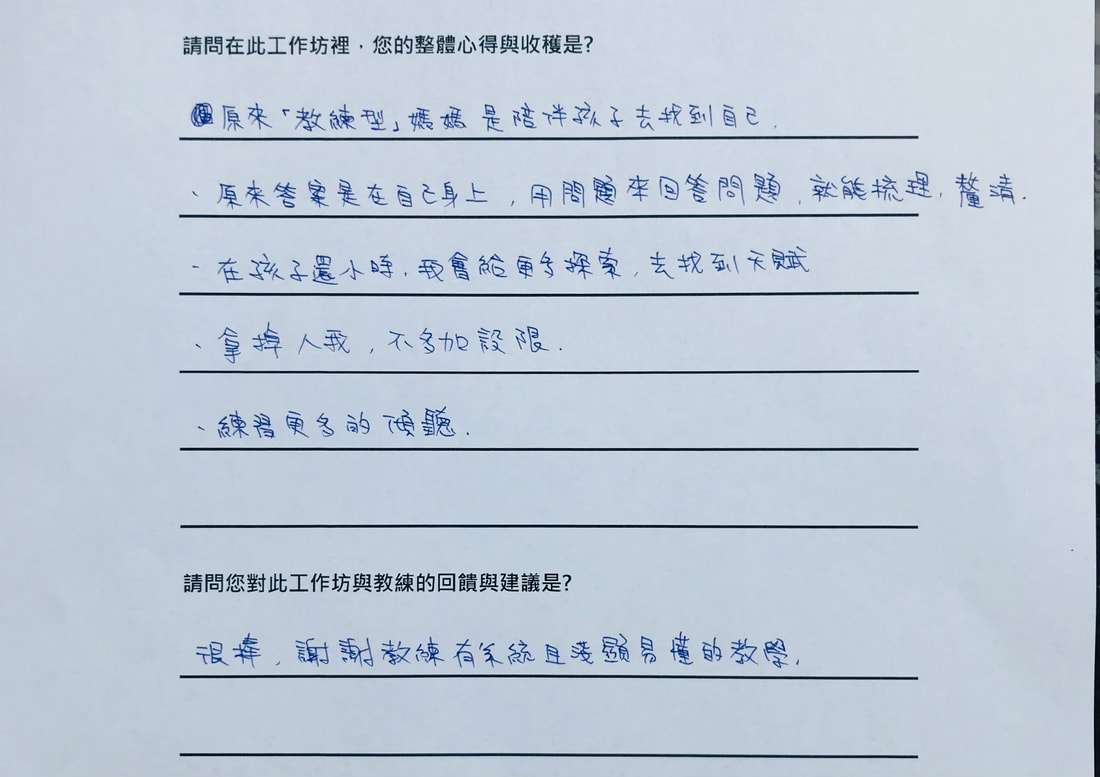 請問在此工作坊裡，您的整體心得與收穫是?
原來「教練型」媽媽是陪伴孩子去找到自己.
、原來答案是在自己身上，用問題來回答問題，就能梳理，釐清.
、在孩子還小時，我會給更多探索，去找到天賦
、拿掉人我，不多加設限.
、練習更多的傾聽.
請問您對此工作坊與教練的回饋與建議是?
很棒，謝謝教練有系統且淺顯易懂的教學，